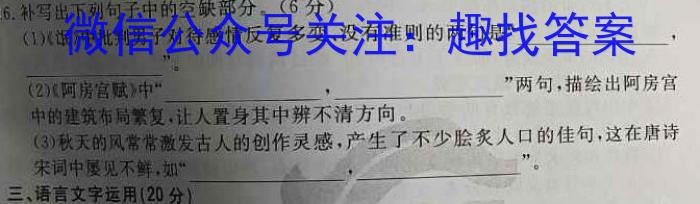 6.补写出下列句子中的空缺部分。(6分)
微信公众号关注:趣找答案
(1)《氓》中批判男子对待感情反复多变、没有准则的两句是"____,
____"。
(2)《阿房宫赋》中"____,____"两句,描绘出阿房宫
中的建筑布局繁复,让人置身其中辨不清方向。
(3)秋天的风常常激发古人的创作灵感,产生了不少脍炙人口的佳句,这在唐诗
宋词中屡见不鲜,如"____,____"。
三、语言文字运用(20分)